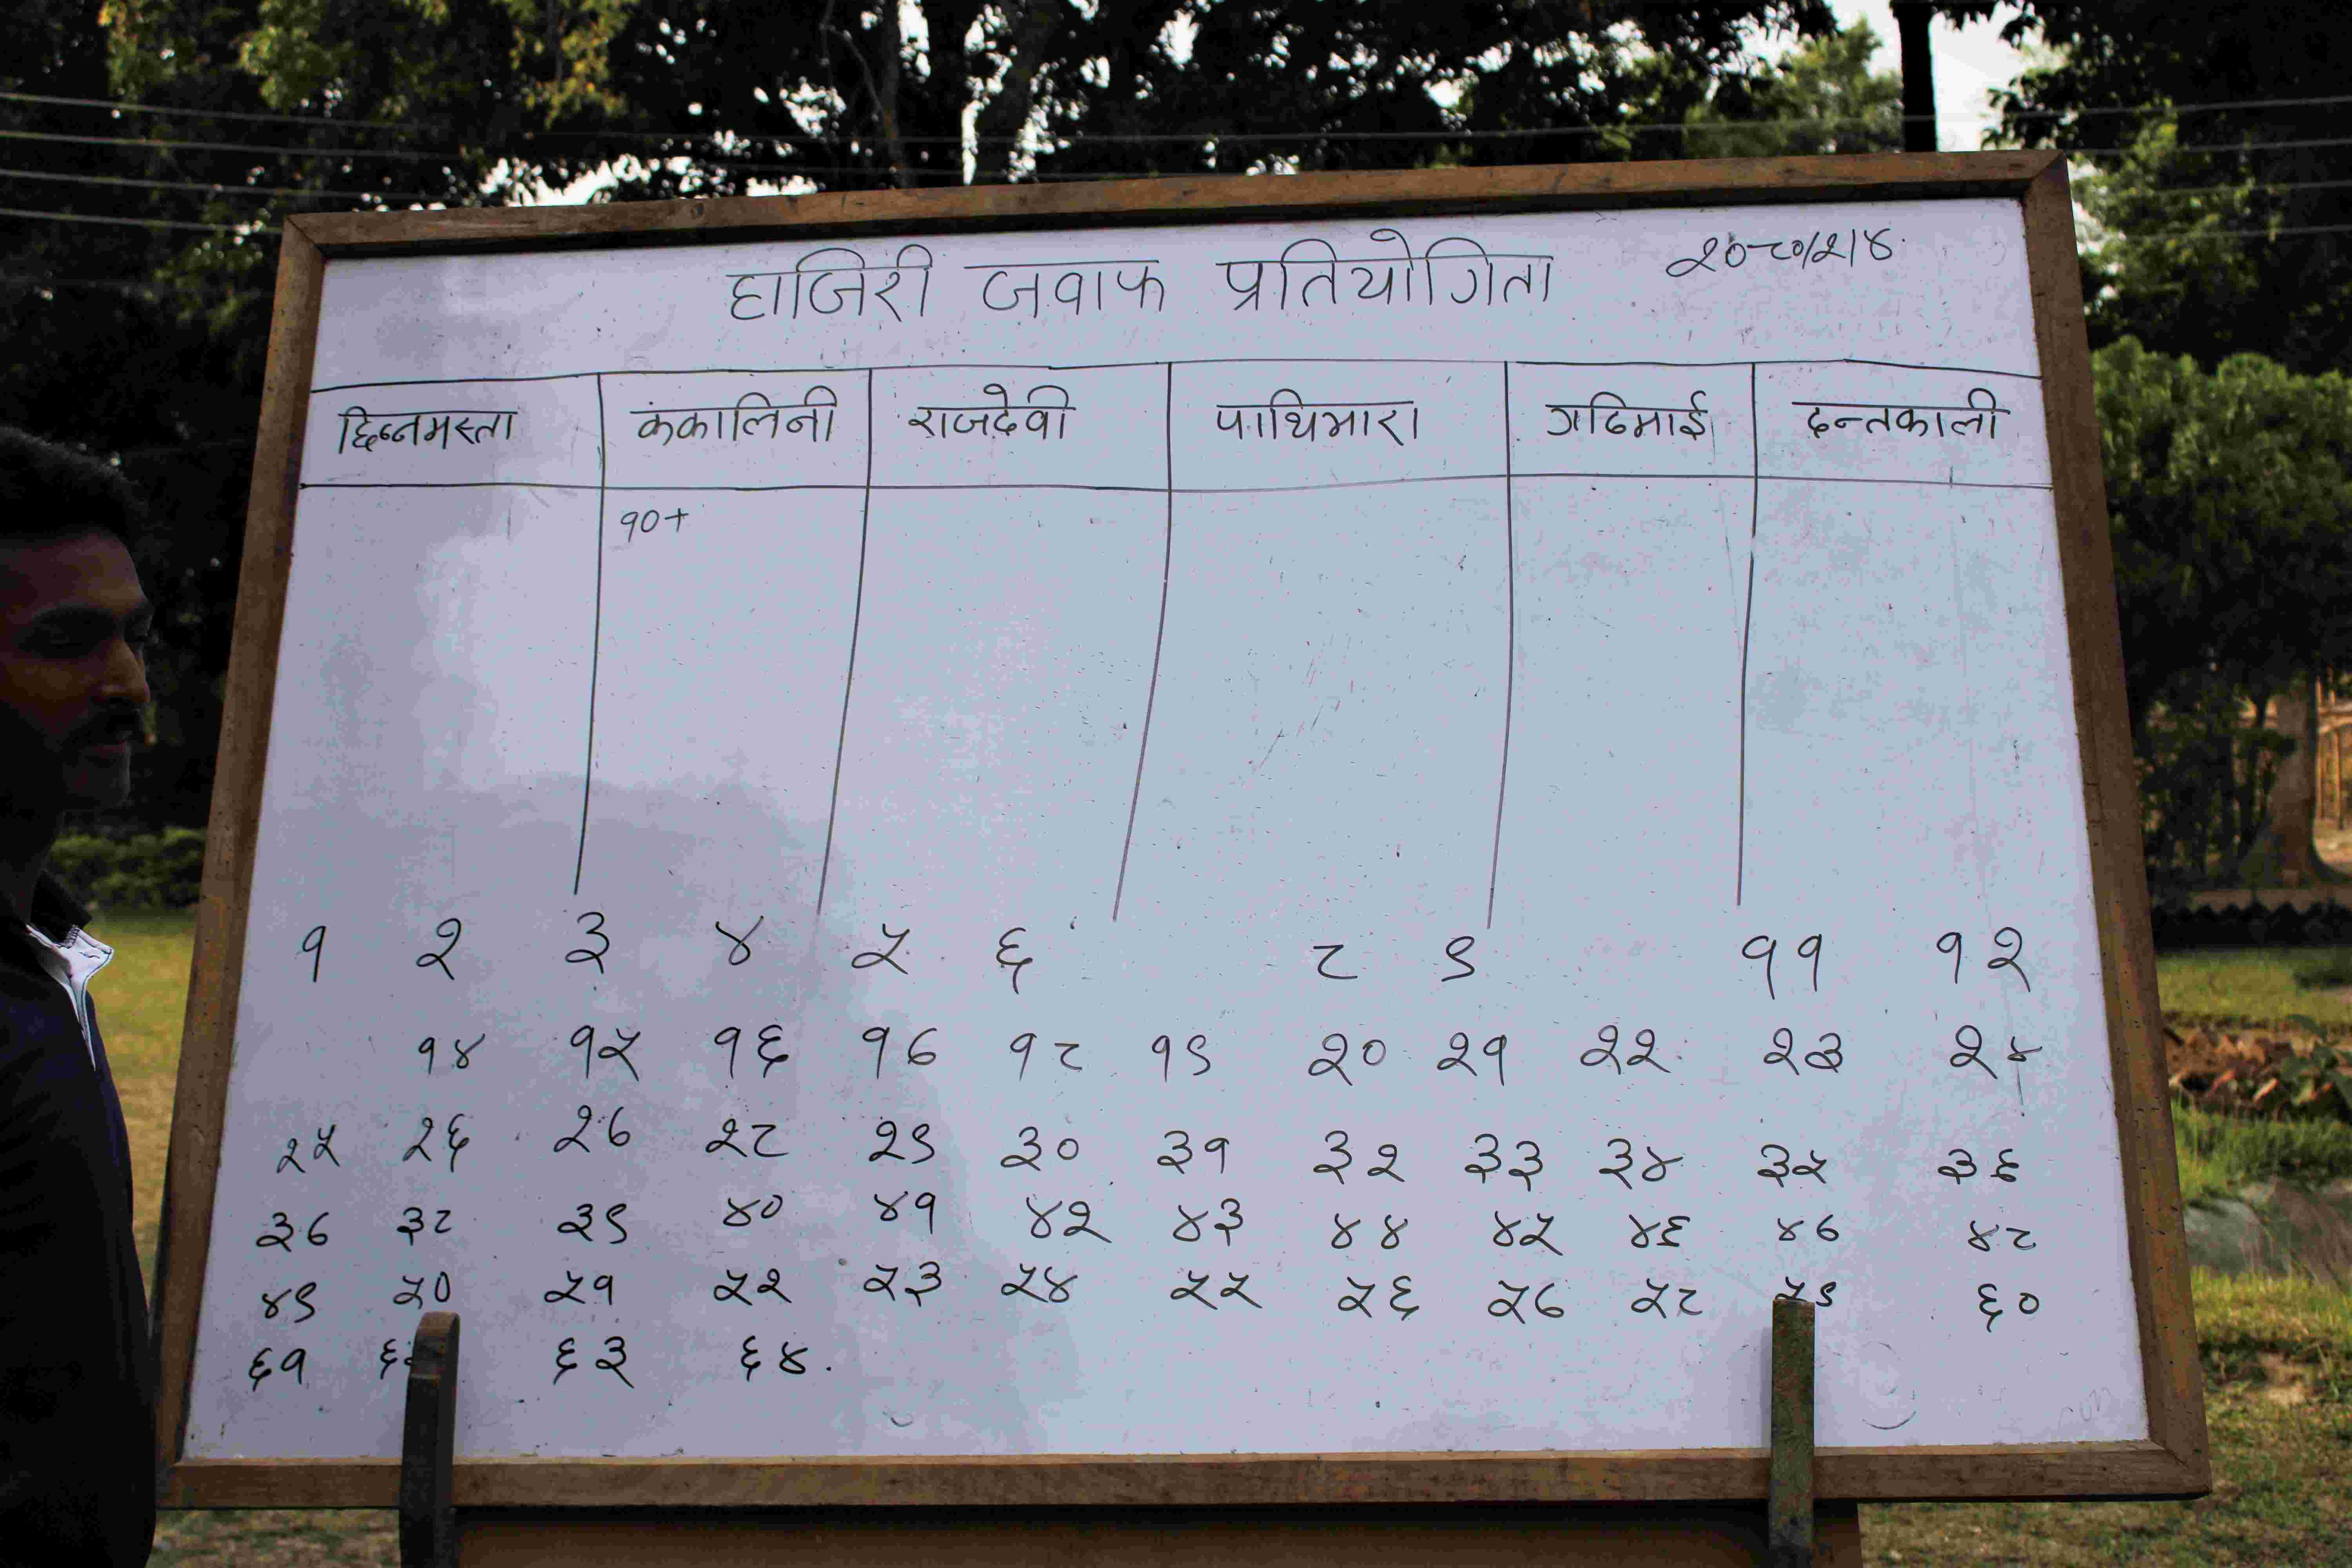 हाजिरी जवाफ प्रतियोगिता २०८०/२/४
छिन्नमस्ता कंकालिनी राजदेवी पाथिभारा गढिमाई दन्तकाली
१०+
१ २ ३ ४ ५ ६ ८ ९ ११ १२
१४ १५ १६ १७ १८ १९ २० २१ २२ २३ २४
२५ २६ २७ २८ २९ ३० ३१ ३२ ३३ ३४ ३५ ३६
३७ ३८ ३९ ४० ४१ ४२ ४३ ४४ ४५ ४६ ४७ ४८
४९ ५० ५१ ५२ ५३ ५४ ५५ ५६ ५७ ५८ ५९ ६०
६१ ६३ ६४.